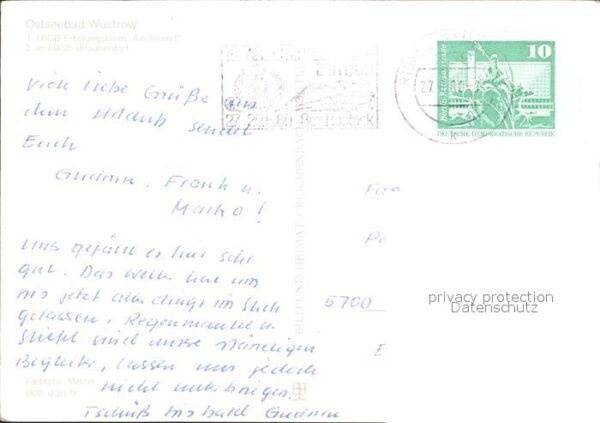 Ostseebad Wustrow
1. FDGB-Erholungsheim „Am Strand"
2. Im FDGB-Urlauberdorf
10
Berlin
DEUTSCHE DEMOKRATISCHE REPUBLIK
Viele liebe Grüße aus
dem Urlaub sendet
Euch
Gudrun, Frank u.
Marko!
Uns gefällt es hier sehr
gut. Das Wetter hat uns
bis jetzt allerdings im Stich
gelassen. Regenmantel u.
Stiefel sind unsre ständigen
Begleiter, lassen uns jedoch
nicht unterkriegen.
Tschüß bis bald Gudrun
BILD UND HEIMAT REICHENBACH
5700
privacy protection
Datenschutz